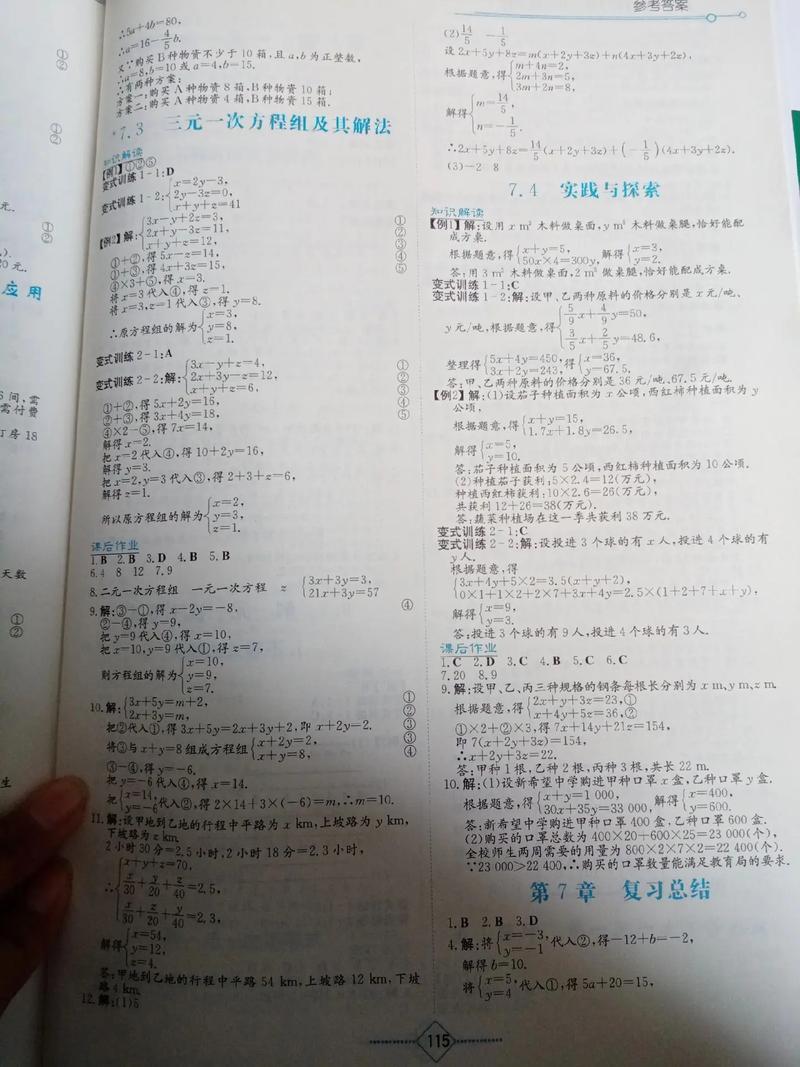 参考答案
∴5a+4b=80,
∴a=16-4/5b.
又∵购买B种物资不少于10箱,且a,b为正整数,
∴a=8,b=10或a=4,b=15.
∴有两种方案:
方案一:购买A种物资8箱,B种物资10箱;
方案二:购买A种物资4箱,B种物资15箱.
*7.3 三元一次方程组及其解法
知识解读
【例1】①②⑤
变式训练1-1:D
变式训练1-2:{x=2y-3,
2y-3z=0,
x+y+z=41
【例2】解:{3x-y+2z=3, ①
2x+y-3z=11, ②
x+y+z=12, ③
①+②,得5x-z=14, ④
①+③,得4x+3z=15, ⑤
④×3+⑤,得x=3.
将x=3代入④,得z=1.
将x=3,z=1代入③,得y=8.
∴原方程组的解为{x=3,
y=8,
z=1.
变式训练2-1:A
变式训练2-2:解:{3x-y+z=4, ①
2x+3y-z=12, ②
x+y+z=6, ③
①+②,得5x+2y=16, ④
②+③,得3x+4y=18, ⑤
④×2-⑤,得7x=14,
解得x=2.
把x=2代入④,得10+2y=16,
解得y=3.
把x=2,y=3代入③,得2+3+z=6,
解得z=1.
所以原方程组的解为{x=2,
y=3,
z=1.
课后作业
1.B 2.B 3.D 4.B 5.B
6.4 8 12 7.9
8.二元一次方程组 一元一次方程 z {3x+3y=3,
21x+3y=57
9.解:③-①,得x-2y=-8, ④
②-④,得y=9,
把y=9代入④,得x=10,
把x=10,y=9代入①,得z=7,
则方程组的解为{x=10,
y=9,
z=7.
10.解:{3x+5y=m+2, ①
2x+3y=m, ②
把②代入①,得3x+5y=2x+3y+2,即x+2y=2. ③
将③与x+y=8组成方程组{x+2y=2, ③
x+y=8, ④
③-④,得y=-6.
把y=-6代入④,得x=14.
把{x=14,
y=-6代入②,得2×14+3×(-6)=m,∴m=10.
11.解:设甲地到乙地的行程中平路为x km,上坡路为y km,
下坡路为z km.
2小时30分=2.5小时,2小时18分=2.3小时,
∴{x+y+z=70,
x/30+y/20+z/40=2.5,
x/30+z/20+y/40=2.3,
解得{x=54,
y=12,
z=4.
答:甲地到乙地的行程中平路54 km,上坡路12 km,下坡
路4 km.
12.解:(1)5
(2)14/5 -1/5
设2x+5y+8z=m(x+2y+3z)+n(4x+3y+2z),
根据题意,得{m+4n=2,
2m+3n=5,
3m+2n=8,
解得{m=14/5,
n=-1/5.
∴2x+5y+8z=14/5(x+2y+3z)+(-1/5)(4x+3y+2z).
(3)-2 8
7.4 实践与探索
知识解读
【例1】解:设用x m³木料做桌面,y m³木料做桌腿,恰好能配
成方桌.
根据题意,得{x+y=5,
50x×4=300y,解得{x=3,
y=2.
答:用3 m³木料做桌面,2 m³做桌腿,恰好能配成方桌.
变式训练1-1:C
变式训练1-2:解:设甲、乙两种原料的价格分别是x元/吨、
y元/吨,根据题意,得{5/9x+4/9y=50,
3/5x+2/5y=48.6,
整理得{5x+4y=450,
3x+2y=243,得{x=36,
y=67.5.
答:甲、乙两种原料的价格分别是36元/吨、67.5元/吨.
【例2】解:(1)设茄子种植面积为x公顷,西红柿种植面积为y
公顷,
根据题意,得{x+y=15,
1.7x+1.8y=26.5,
解得{x=5,
y=10.
答:茄子种植面积为5公顷,西红柿种植面积为10公顷.
(2)种植茄子获利:5×2.4=12(万元),
种植西红柿获利:10×2.6=26(万元),
共获利12+26=38(万元).
答:蔬菜种植场在这一季共获利38万元.
变式训练2-1:C
变式训练2-2:解:设投进3个球的有x人,投进4个球的有
y人.
根据题意,得
{3x+4y+5×2=3.5(x+y+2),
0×1+1×2+2×7+3x+4y=2.5×(1+2+7+x+y),
解得{x=9,
y=3.
答:投进3个球的有9人,投进4个球的有3人.
课后作业
1.C 2.D 3.C 4.B 5.C 6.C
7.20 8.9
9.解:设甲、乙、丙三种规格的钢条每根长分别为x m、y m、z m.
根据题意,得{2x+y+3z=23,①
x+4y+5z=36,②
①×2+②×3,得7x+14y+21z=154,
即7(x+2y+3z)=154,
∴x+2y+3z=22.
答:甲种1根,乙种2根,丙种3根,共长22 m.
10.解:(1)设新希望中学购进甲种口罩x盒,乙种口罩y盒.
根据题意,得{x+y=1 000,
30x+35y=33 000,解得{x=400,
y=600.
答:新希望中学购进甲种口罩400盒,乙种口罩600盒.
(2)购买的口罩总数为400×20+600×25=23 000(个),
全校师生两周需要的用量为800×2×7×2=22 400(个).
∵23 000>22 400,∴购买的口罩数量能满足教育局的要求.
第7章 复习总结
1.B 2.B 3.D
4.解:将{x=-3,
y=-1代入②,得-12+b=-2,
解得b=10.
将{x=5,
y=4代入①,得5a+20=15,
115